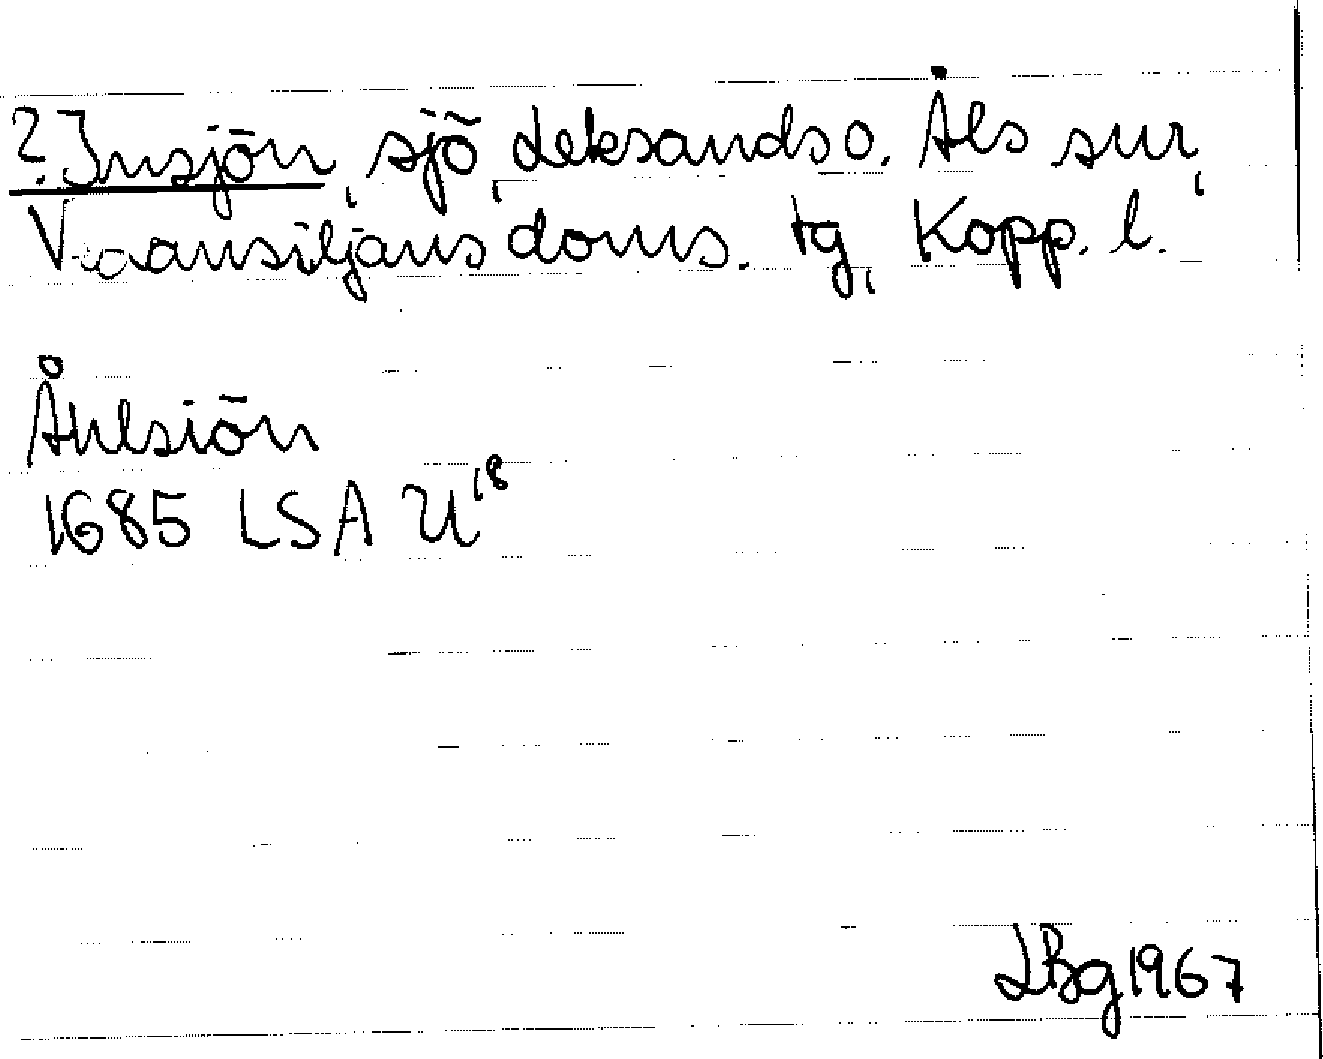 ?Insjön, sjö, Leksands o. Åls snr,
V ansiljans doms. tg, Kopp. l.
Åhlsiön
1685 LSA U18
LBg 1967